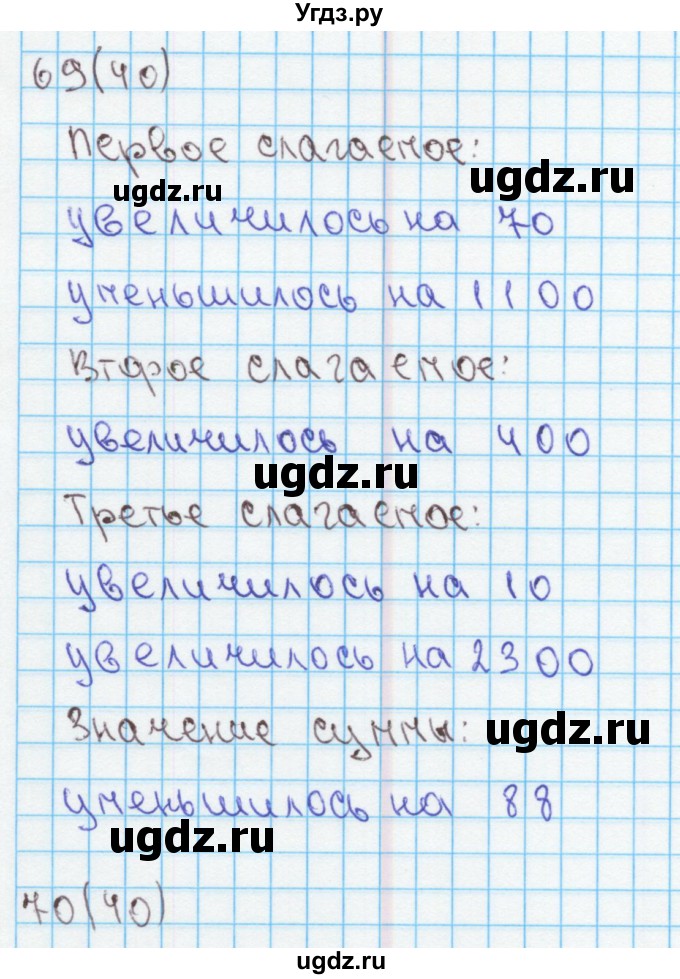 Угдз.ру
69(40)
Первое слагаемое:
ugdz.ru
ugdz.ru
увеличилось на 70
уменьшилось на 1100
Второе слагаемое:
увеличилось на 400
ugdz.ru
Третье слагаемое:
увеличилось на 10
увеличилось на 2300
Значение суммы:
ugdz.ru
уменьшилось на 88
ugdz.ru
70(40)
ugdz.ru